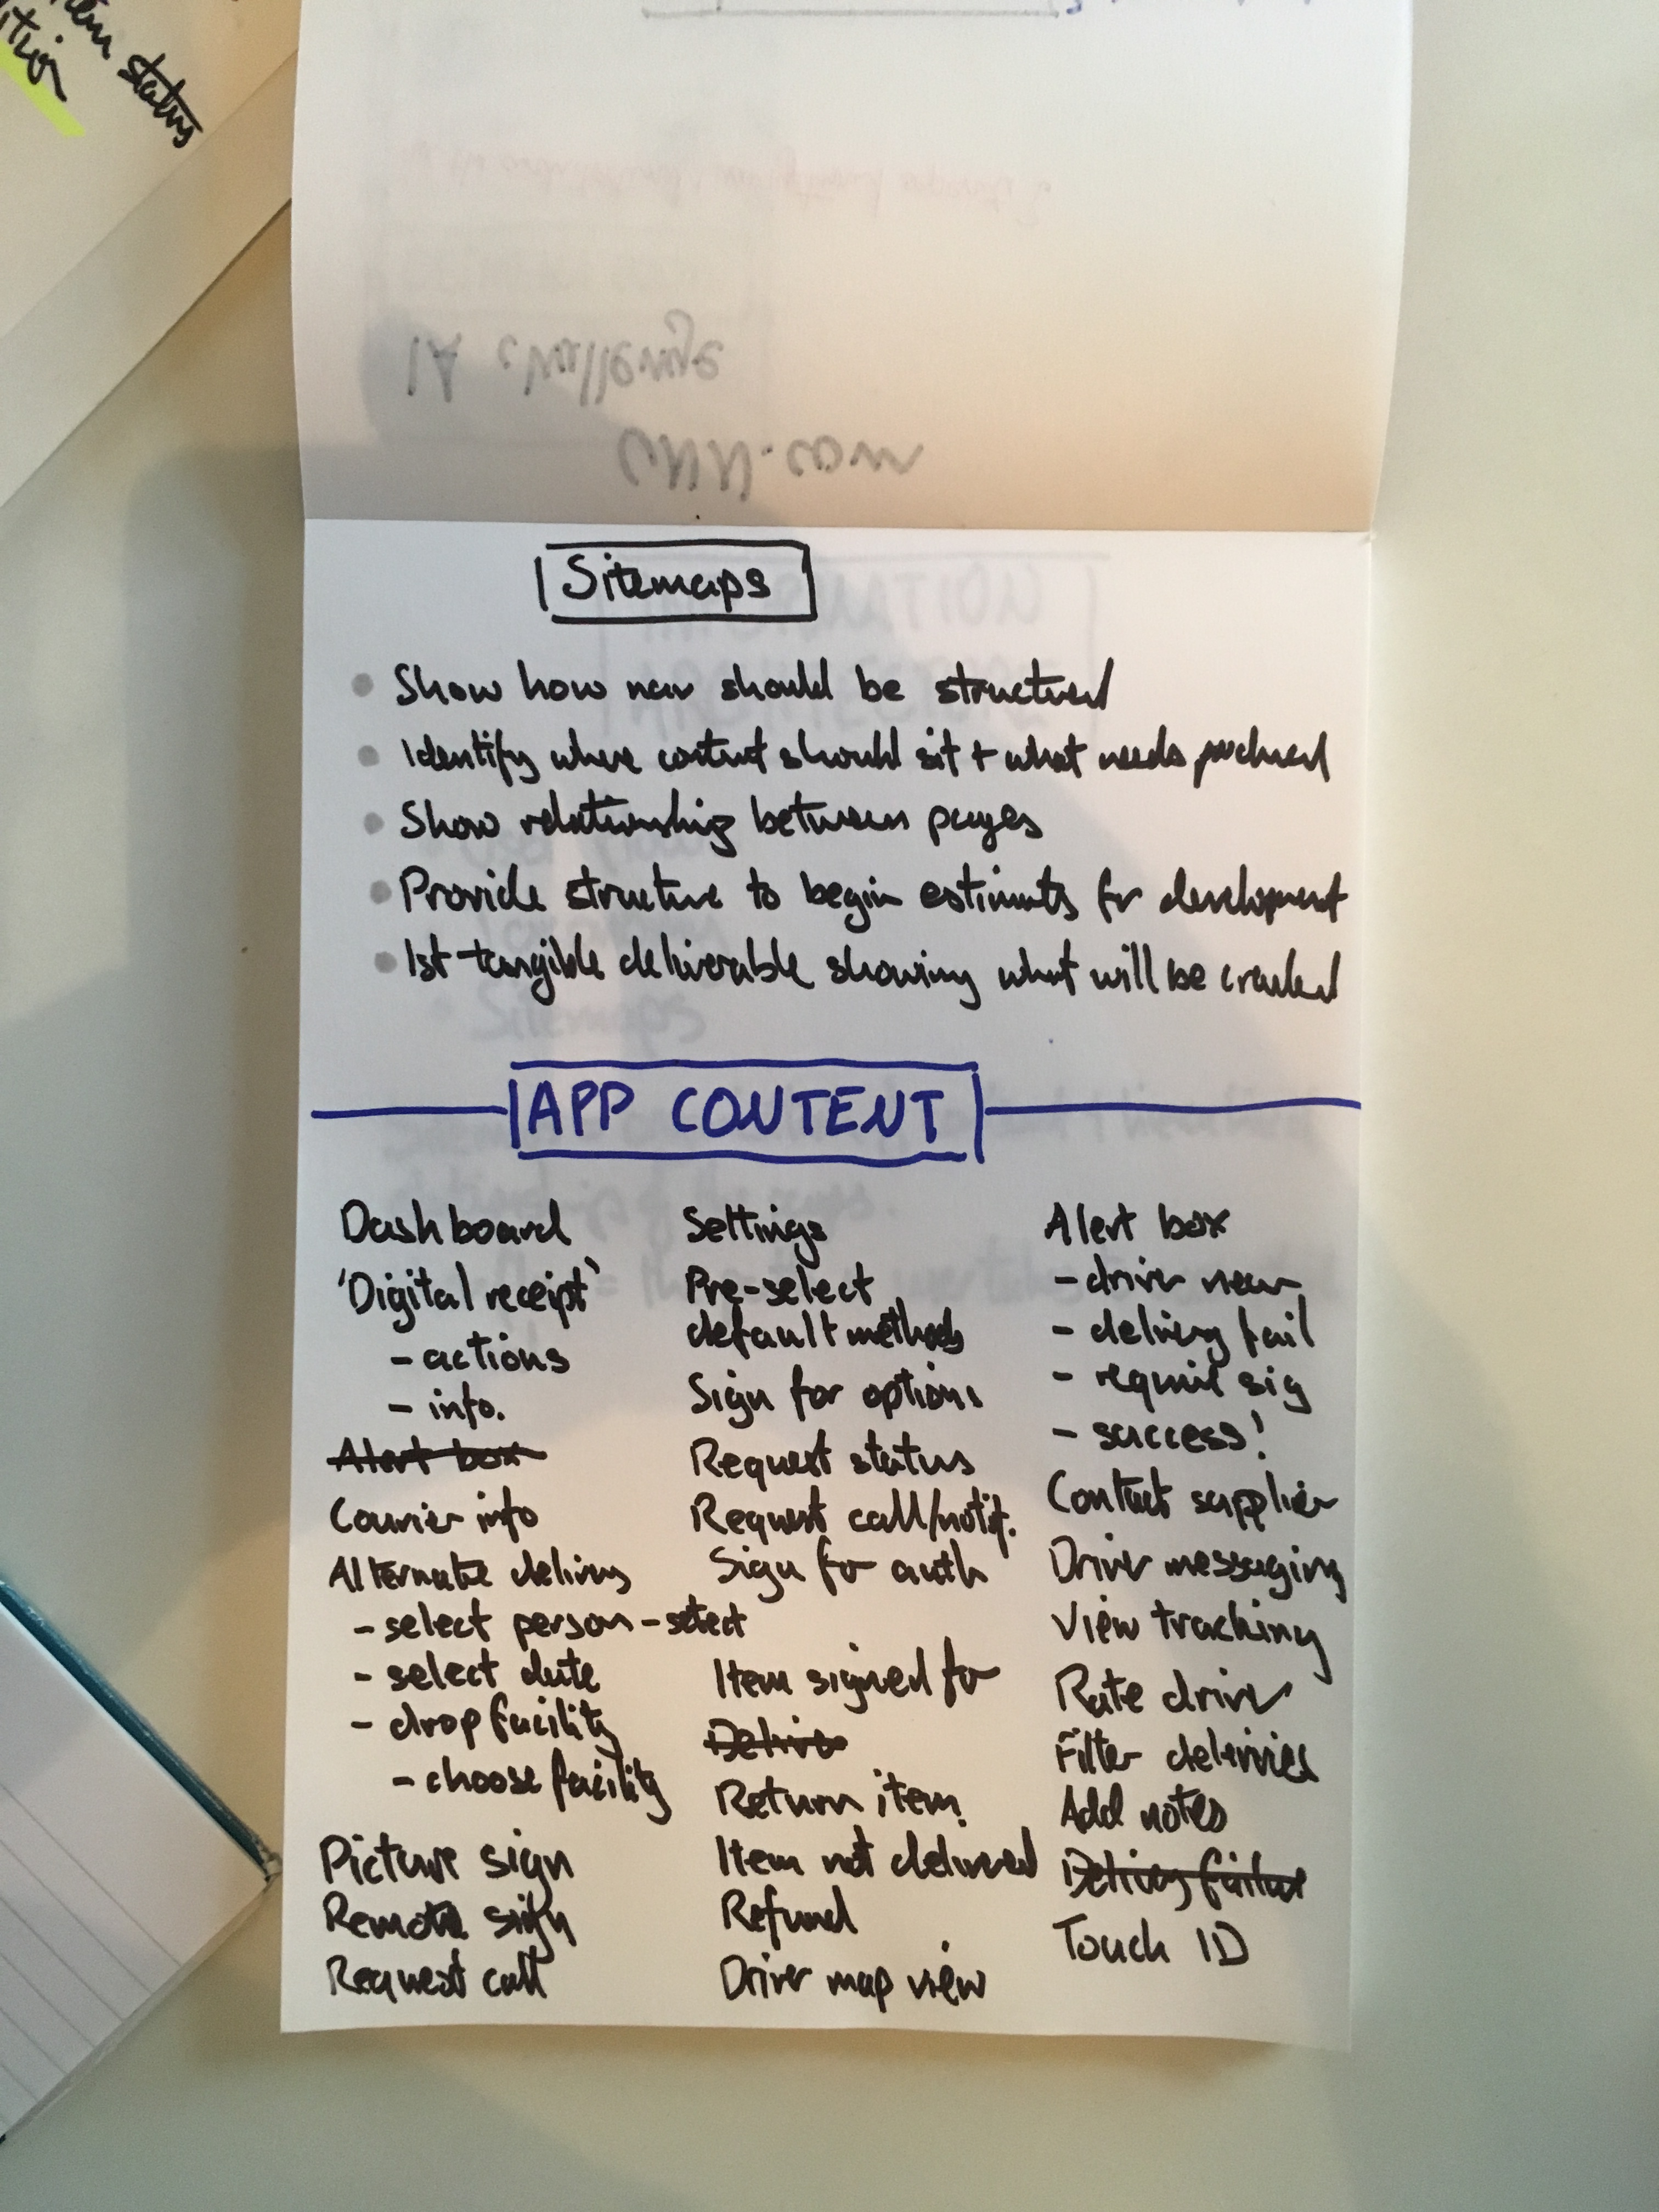 status
Sitemaps
Show how nav should be structured
Identify where content should sit + what needs produced
Show relationship between pages
Provide structure to begin estimates for development
1st tangible deliverable showing what will be created
APP CONTENT
Dashboard
'Digital receipt'
- actions
- info.
Alert box
Courier info
Alternate delivery
- select person - select
- select date
- drop facility
- choose facility
Picture sign
Remote sign
Request call
Settings
Pre-select
default methods
Sign for options
Request status
Request call/notif.
Sign for auth
Item signed for
Return item
Item not delivered
Refund
Driver map view
Alert box
- driver near
- delivery fail
- require sig
- success!
Contact supplier
Driver messaging
View tracking
Rate driver
Filter deliveries
Add notes
Delivery failure
Touch ID
IA challenge
CNN.com